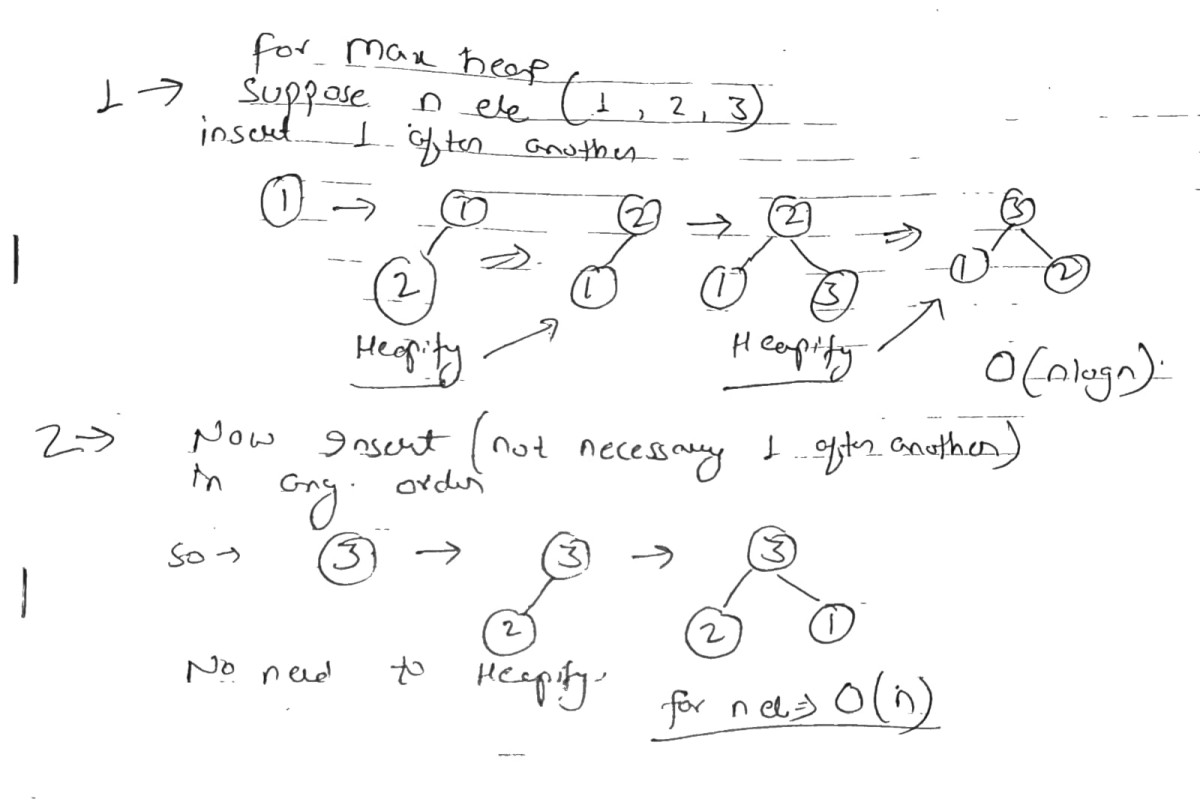 for max heap
1 → suppose n ele (1, 2, 3)
insert 1 after another
① → ① ⇒ ② → ② ⇒ ③
② ① ① ③ ① ②
Heapify Heapify
O(nlogn).
2 ⇒ Now Insert (not necessary 1 after another)
in any. order
so → ③ → ③ → ③
② ② ①
No need to Heapify.
for n el ⇒ O(n)